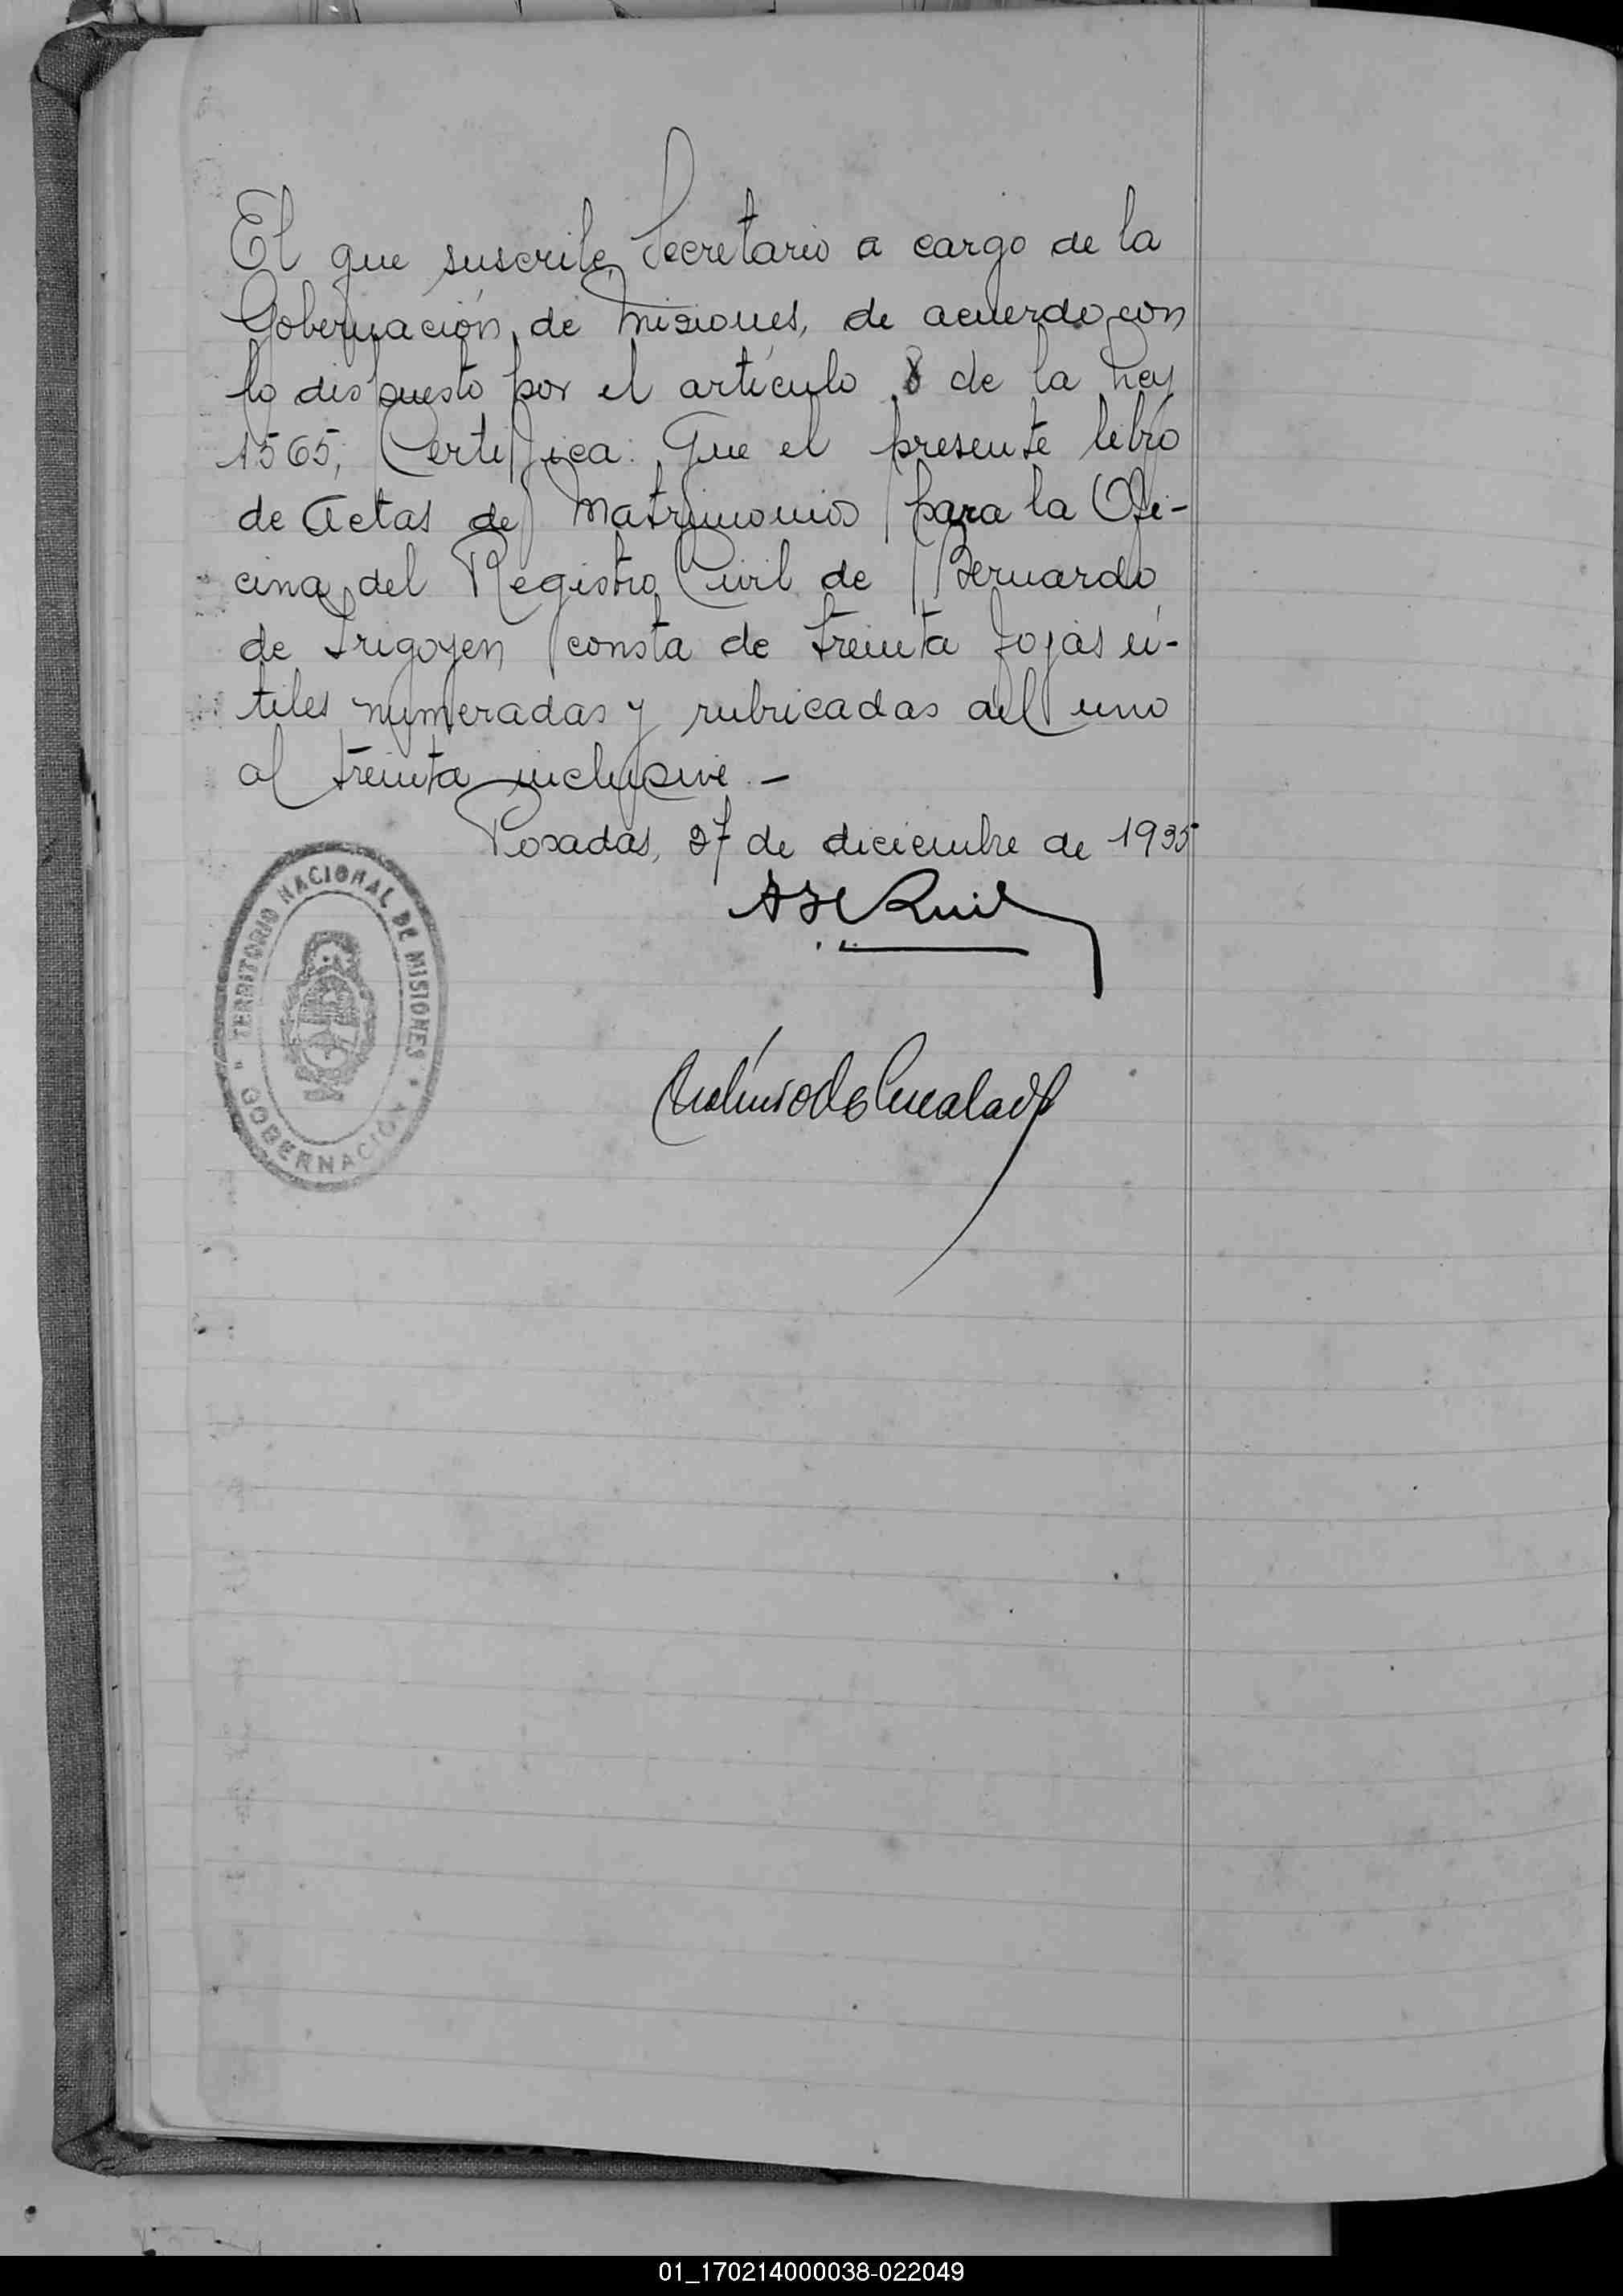 El que suscribe, Secretario a cargo de la
Gobernación de Misiones, de acuerdo con
lo dispuesto por el artículo 8 de la Ley
1565; Certifica: Que el presente libro
de Actas de Matrimonios para la Ofi-
cina del Registro Civil de Bernardo
de Irigoyen consta de treinta fojas ú-
tiles numeradas y rubricadas del uno
al treinta inclusive.-
Posadas, 27 de diciembre de 1935
TERRITORIO NACIONAL DE MISIONES
GOBERNACIÓN
01_170214000038-022049